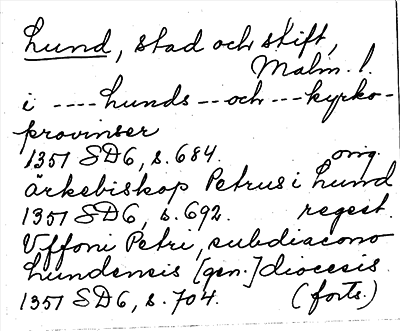 Lund, stad och stift,
Malm. l.
i ---- Lunds -- och --- kyrko-
provinser
1351 SD6, s. 684. orig.
ärkebiskop Petrus i Lund
1351 SD6, s. 692. regest.
Uffoni Petri, subdiacono
Lundensis [gen.] diocesis
1351 SD6, s. 704. (forts.)